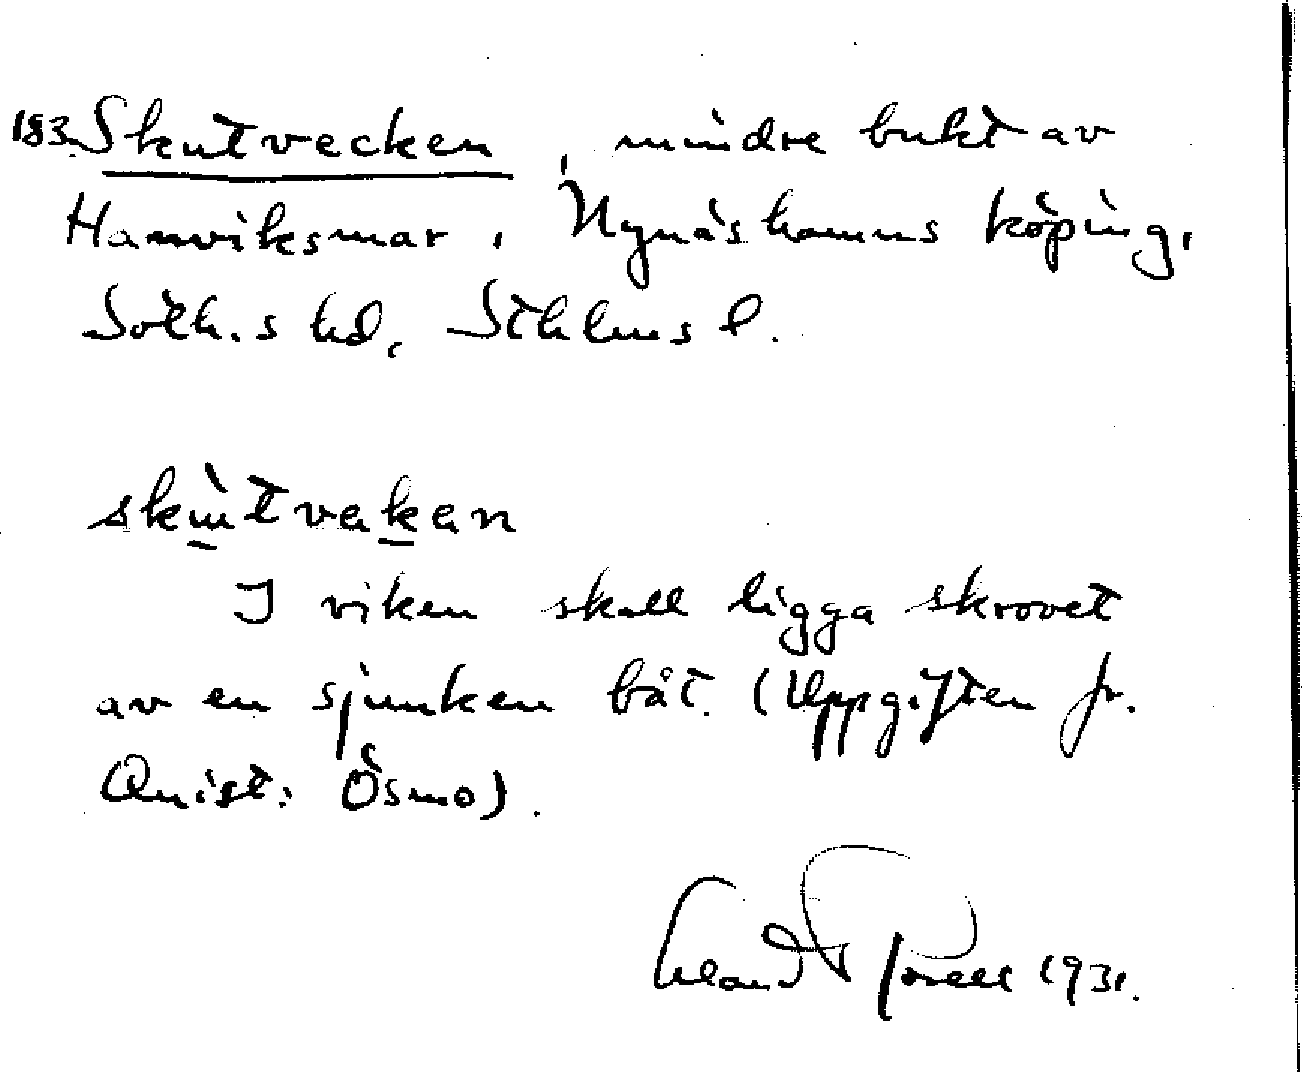 183. Skutvecken, mindre bukt av
Hamviksmar, Nynäshamns köping,
Soth.s hd, Sthlms l.
skùtveken
I viken skall ligga skrovet
av en sjunken båt. (Uppgiften fr.
Quist: Ösmo).
1931.